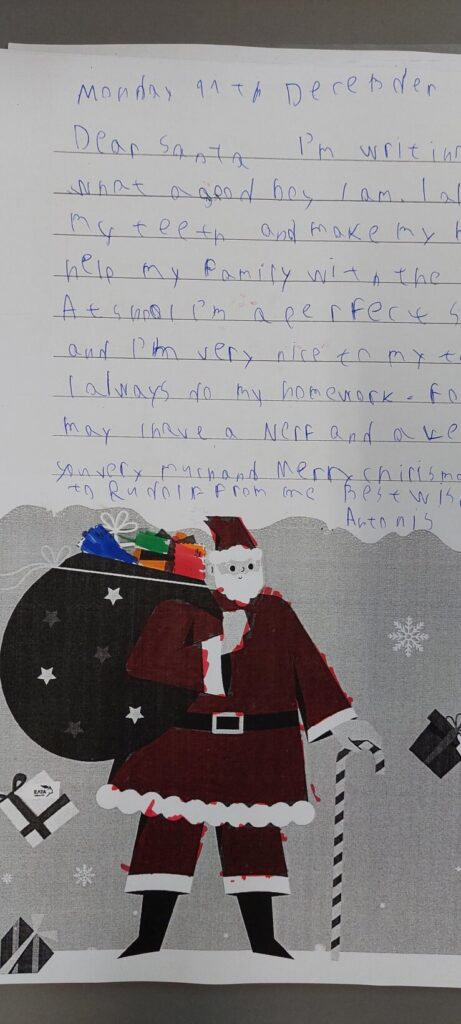 Monday 11th December
Dear Santa I'm writin
what a good boy I am. I al
my teeth and make my
help my family with the
At shool I'm a perfect s
and I'm very nice to my t
I always do my homework. Fo
may I have a Nerf and a
you very mushand Merry chirisma
to Rudolf from me Best wis
Antonis
ΕΛΤΑ